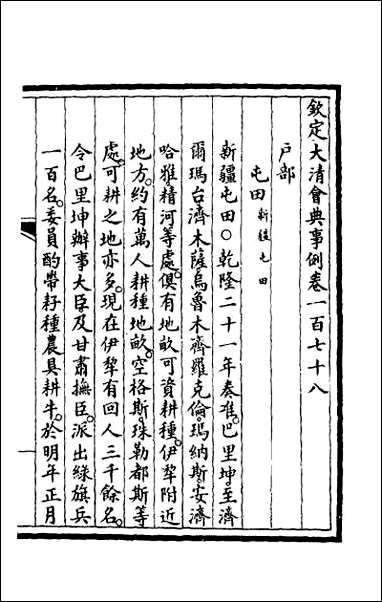 欽定大清會典事例卷一百七十八
戶部
屯田新疆屯田
新疆屯田○乾隆二十一年奏准。巴里坤。至濟
爾瑪台濟木薩烏魯木齊羅克倫。瑪納斯。安濟
哈雅。精河等處。俱有地畝可資耕種。伊犂附近
地方。約有萬人耕種地畝。空格斯。珠勒都斯等
處。可耕之地亦多。現在伊犂有回人三千餘名。
令巴里坤辦事大臣及甘肅撫臣。派出綠旗兵
一百名。委員酌帶籽種農具耕牛。於明年正月